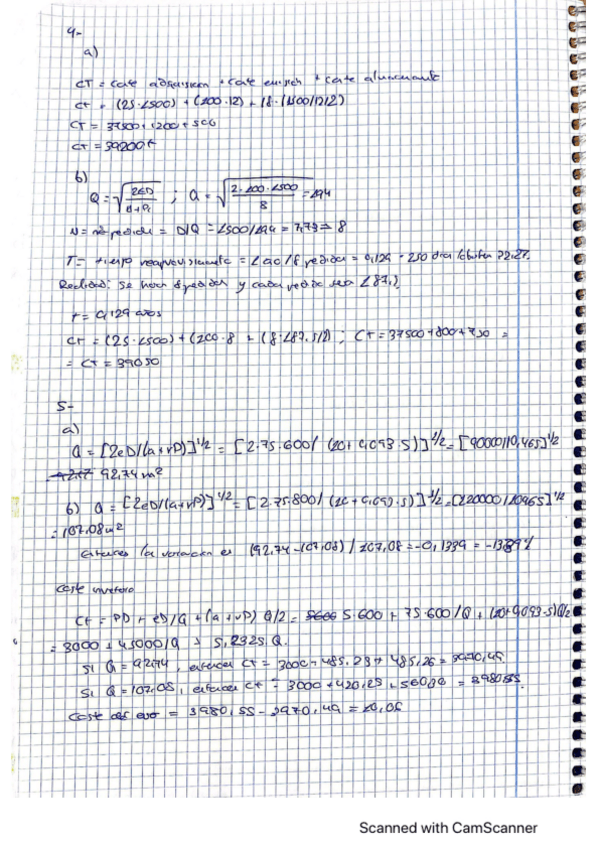 4-
a)
CT = Coste adquisicion + coste emisión + coste almacenamiento
Ct = (25·1500) + (100·12) + (8·(1500/12/2)
CT = 37500 + 1200 + 500
CT = 39200€
b)
Q = √2ED/a+Pi ; Q = √2·100·1500/8 = 194
N = nº pedidos = D/Q = 1500/194 = 7,73 → 8
T = tiempo reaprovisionamiento = 1 año/8 pedidos = 0,129 · 250 dias
Realidad: Se hacen 8 pedidos y cada pedido sea 187,5
t = 0,129 años
Ct = (25·1500) + (100·8 + (8·187,5/2) ; CT = 37500 + 800 + 750 =
= CT = 39050
5-
a)
Q = [2eD/(a+rP)]^1/2 = [2·75·600/(10+0,093·5)]^1/2 = [90000/10,465]^1/2
92.74 m²
b) Q = [2eD/(a+rP)]^1/2 = [2·75·800/(10+0,093·5)]^1/2 = [120000/10465]^1/2
= 107.08 m²
entonces la variacion es (92.74-107,08)/107,08 = -0,1339 = -13,39%
Coste inventario
Ct = PD + eD/Q + (a+rP) Q/2 = 5·600 + 75·600/Q + (10+0,093·5)Q/2
= 3000 + 45000/Q + 5,2325 Q.
Si Q = 92,74, entonces CT = 3000 + 485,23 + 485,26 = 3970,49
Si Q = 107,08, entonces Ct = 3000 + 420,25 + 560,30 = 3980,55
Coste del error = 3980,55 - 3970,49 = 10,06
Scanned with CamScanner